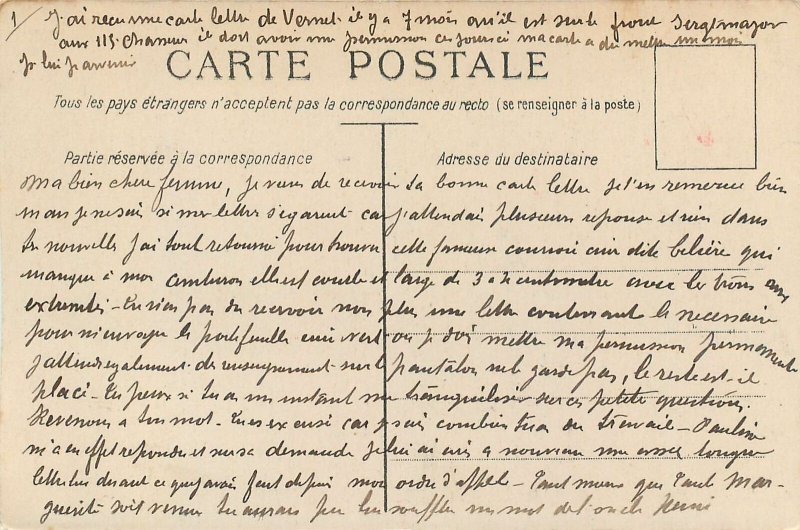 1/ J'ai reçu une carte lettre de Vernet il y a 7 mois qu'il est sur le front sergt major
aux 115 chasseur il doit avoir une permission ces jours ci ma carte a du mettre un mois
Je lui parvenir
CARTE POSTALE
Tous les pays étrangers n'acceptent pas la correspondance au recto (se renseigner à la poste)
Partie réservée à la correspondance
Adresse du destinataire
Ma bien chere femme, je viens de recevoir ta bonne carte lettre je t'en remercie bien
mais je ne sais si mes lettres s'egarent car j'attendais plusieurs reponse et rien dans
tes nouvelles j'ai tout retourné pour trouver cette fameuse courroie cuir dite beliere qui
manque a mon ceinturon elle est courte et large de 3 a 4 centimetre avec les trous aux
extremités - Tu n'as pas du recevoir non plus une lettre contenant le necessaire
pour m'envoyer le portefeuille cuir vert ou je dois mettre ma permission permanente
j'attend egalement des renseignement sur le pantalon ne le garde pas, le reste est-il
placé - Tu peux si tu as un instant me tranquiliser sur ces petite question.
Revenons a ton mot. Tu es excusé car je sais combien tu as du travail - Pauline
m'a en effet repondu et sur sa demande je lui ai ecris a nouveau une assez longue
lettre lui disant ce que j'avais fait depuis mon ordre d'appel - Tant mieux que Tante Mar-
guerite soit venue tu auras pu lui souffler un mot de l'oncle Henri